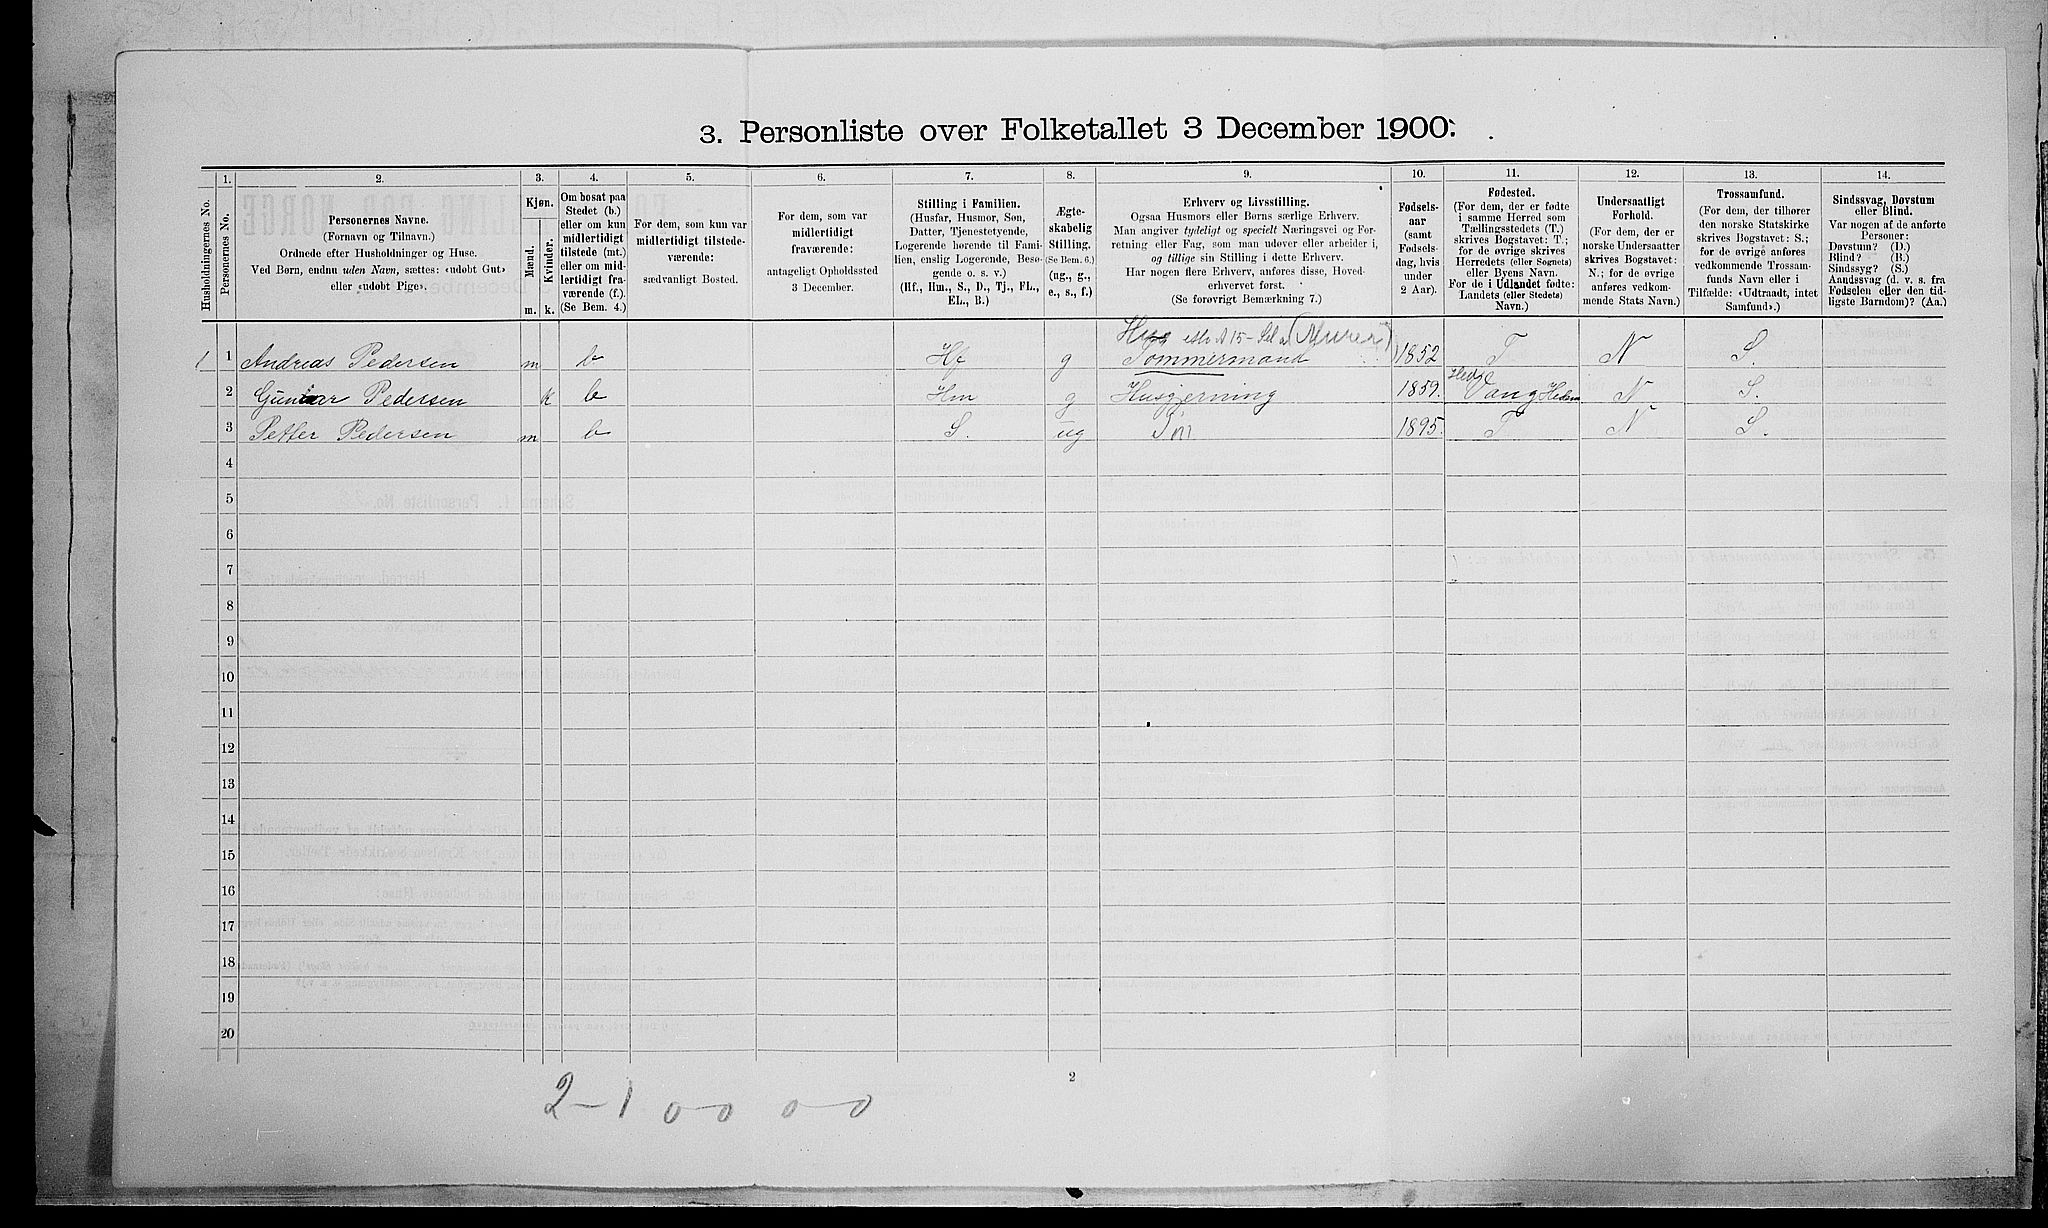 3. Personliste over Folketallet 3 December 1900.
1. 2. 3. 4. 5. 6. 7. 8. 9. 10. 11. 12. 13. 14.
Husholdningernes No.
Personernes No.
Personernes Navne.
(Fornavn og Tilnavn.)
Ordnede efter Husholdninger og Huse.
Ved Børn, endnu uden Navn, sættes: «udøbt Gut»
eller «udøbt Pige».
Kjøn.
Mænd.
Kvinder.
m. k.
Om bosat paa
Stedet (b.)
eller om kun
midlertidigt
tilstede (mt.)
eller om mid-
lertidigt fra-
værende (f.).
(Se Bem. 4.)
For dem, som kun var
midlertidigt tilstede-
værende:
sædvanligt Bosted.
For dem, som var
midlertidigt
fraværende:
antageligt Opholdssted
3 December.
Stilling i Familien.
(Husfar, Husmor, Søn,
Datter, Tjenestetyende,
Logerende hørende til Fami-
lien, enslig Logerende, Besø-
gende o. s. v.)
(Hf., Hm., S., D., Tj., FL.,
EL., B.)
Ægte-
skabelig
Stilling.
(Se Bem. 6.)
(ug., g.,
e., s., f.)
Erhverv og Livsstilling.
Ogsaa Husmors eller Børns særlige Erhverv.
Man angiver tydeligt og specielt Næringsvei og For-
retning eller Fag, som man udøver eller arbeider i,
og tillige sin Stilling i dette Erhverv.
Har nogen flere Erhverv, anføres disse, Hoved-
erhvervet først.
(Se forøvrigt Bemærkning 7.)
Fødsels-
aar
(samt
Fødsels-
dag, hvis
under
2 Aar).
Fødested.
(For dem, der er fødte
i samme Herred som
Tællingsstedets (T.)
skrives Bogstavet: T.;
for de øvrige skrives
Herredets (eller Sognets)
eller Byens Navn.
For de i Udlandet fødte:
Landets (eller Stedets)
Navn.)
Undersaatligt
Forhold.
(For dem, der er
norske Undersaatter
skrives Bogstavet:
N.; for de øvrige
anføres vedkom-
mende Stats Navn.)
Trossamfund.
(For dem, der tilhører
den norske Statskirke
skrives Bogstavet: S.;
for de øvrige anføres
vedkommende Trossam-
funds Navn eller i
Tilfælde: «Udtraadt, intet
Samfund».)
Sindssvag, Døvstum
eller Blind.
Var nogen af de anførte
Personer:
Døvstum? (D.)
Blind? (B.)
Sindssyg? (S.)
Aandssvag (d. v. s. fra
Fødselen eller den tid-
ligste Barndom)? (Aa.)
(Murer)
1 1 Andreas Pedersen m b Hf g Tømmermand 1852 T N S.
2 Pedersen k b Hm g Husgjerning 1859. Vang Hedm N S.
3 Petter Pedersen m b S. ug Søn 1895. T N S.
4
5
6
7
8
9
10
11
12
13
14
15
16
17
18
19
20
2
2-1 0-0 0-0